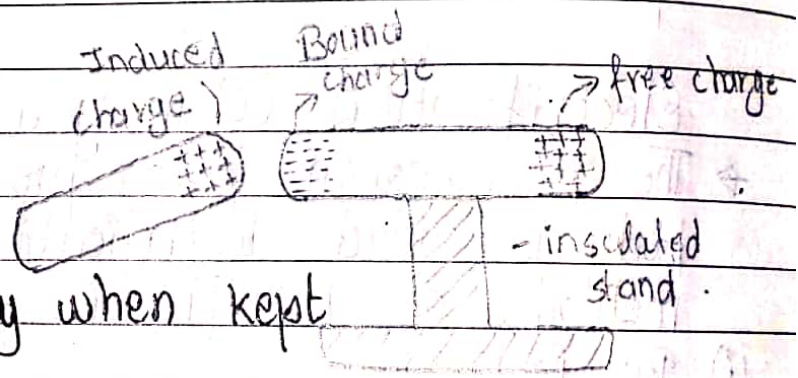 Induced
charge)
Bound
charge
free charge
- insulated
stand.
y when kept